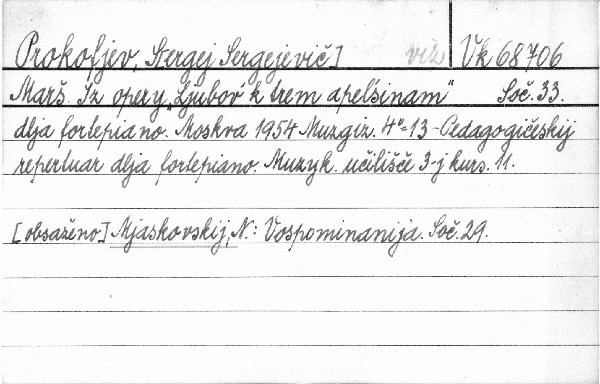 Prokofjev, Sergej Sergejevič] viz Vk 68706
Marš. Iz opery „Ljubov' k trem apel'sinam" Soč. 33.
dlja fortepiano. Moskva 1954 Muzgiz. 4° 13 - Pedagogičeskij
repertuar dlja fortepiano. Muzyk. učilišče 3-j kurs. 11.
[obsaženo] Mjaskovskij, N.: Vospominanija. Soč. 29.